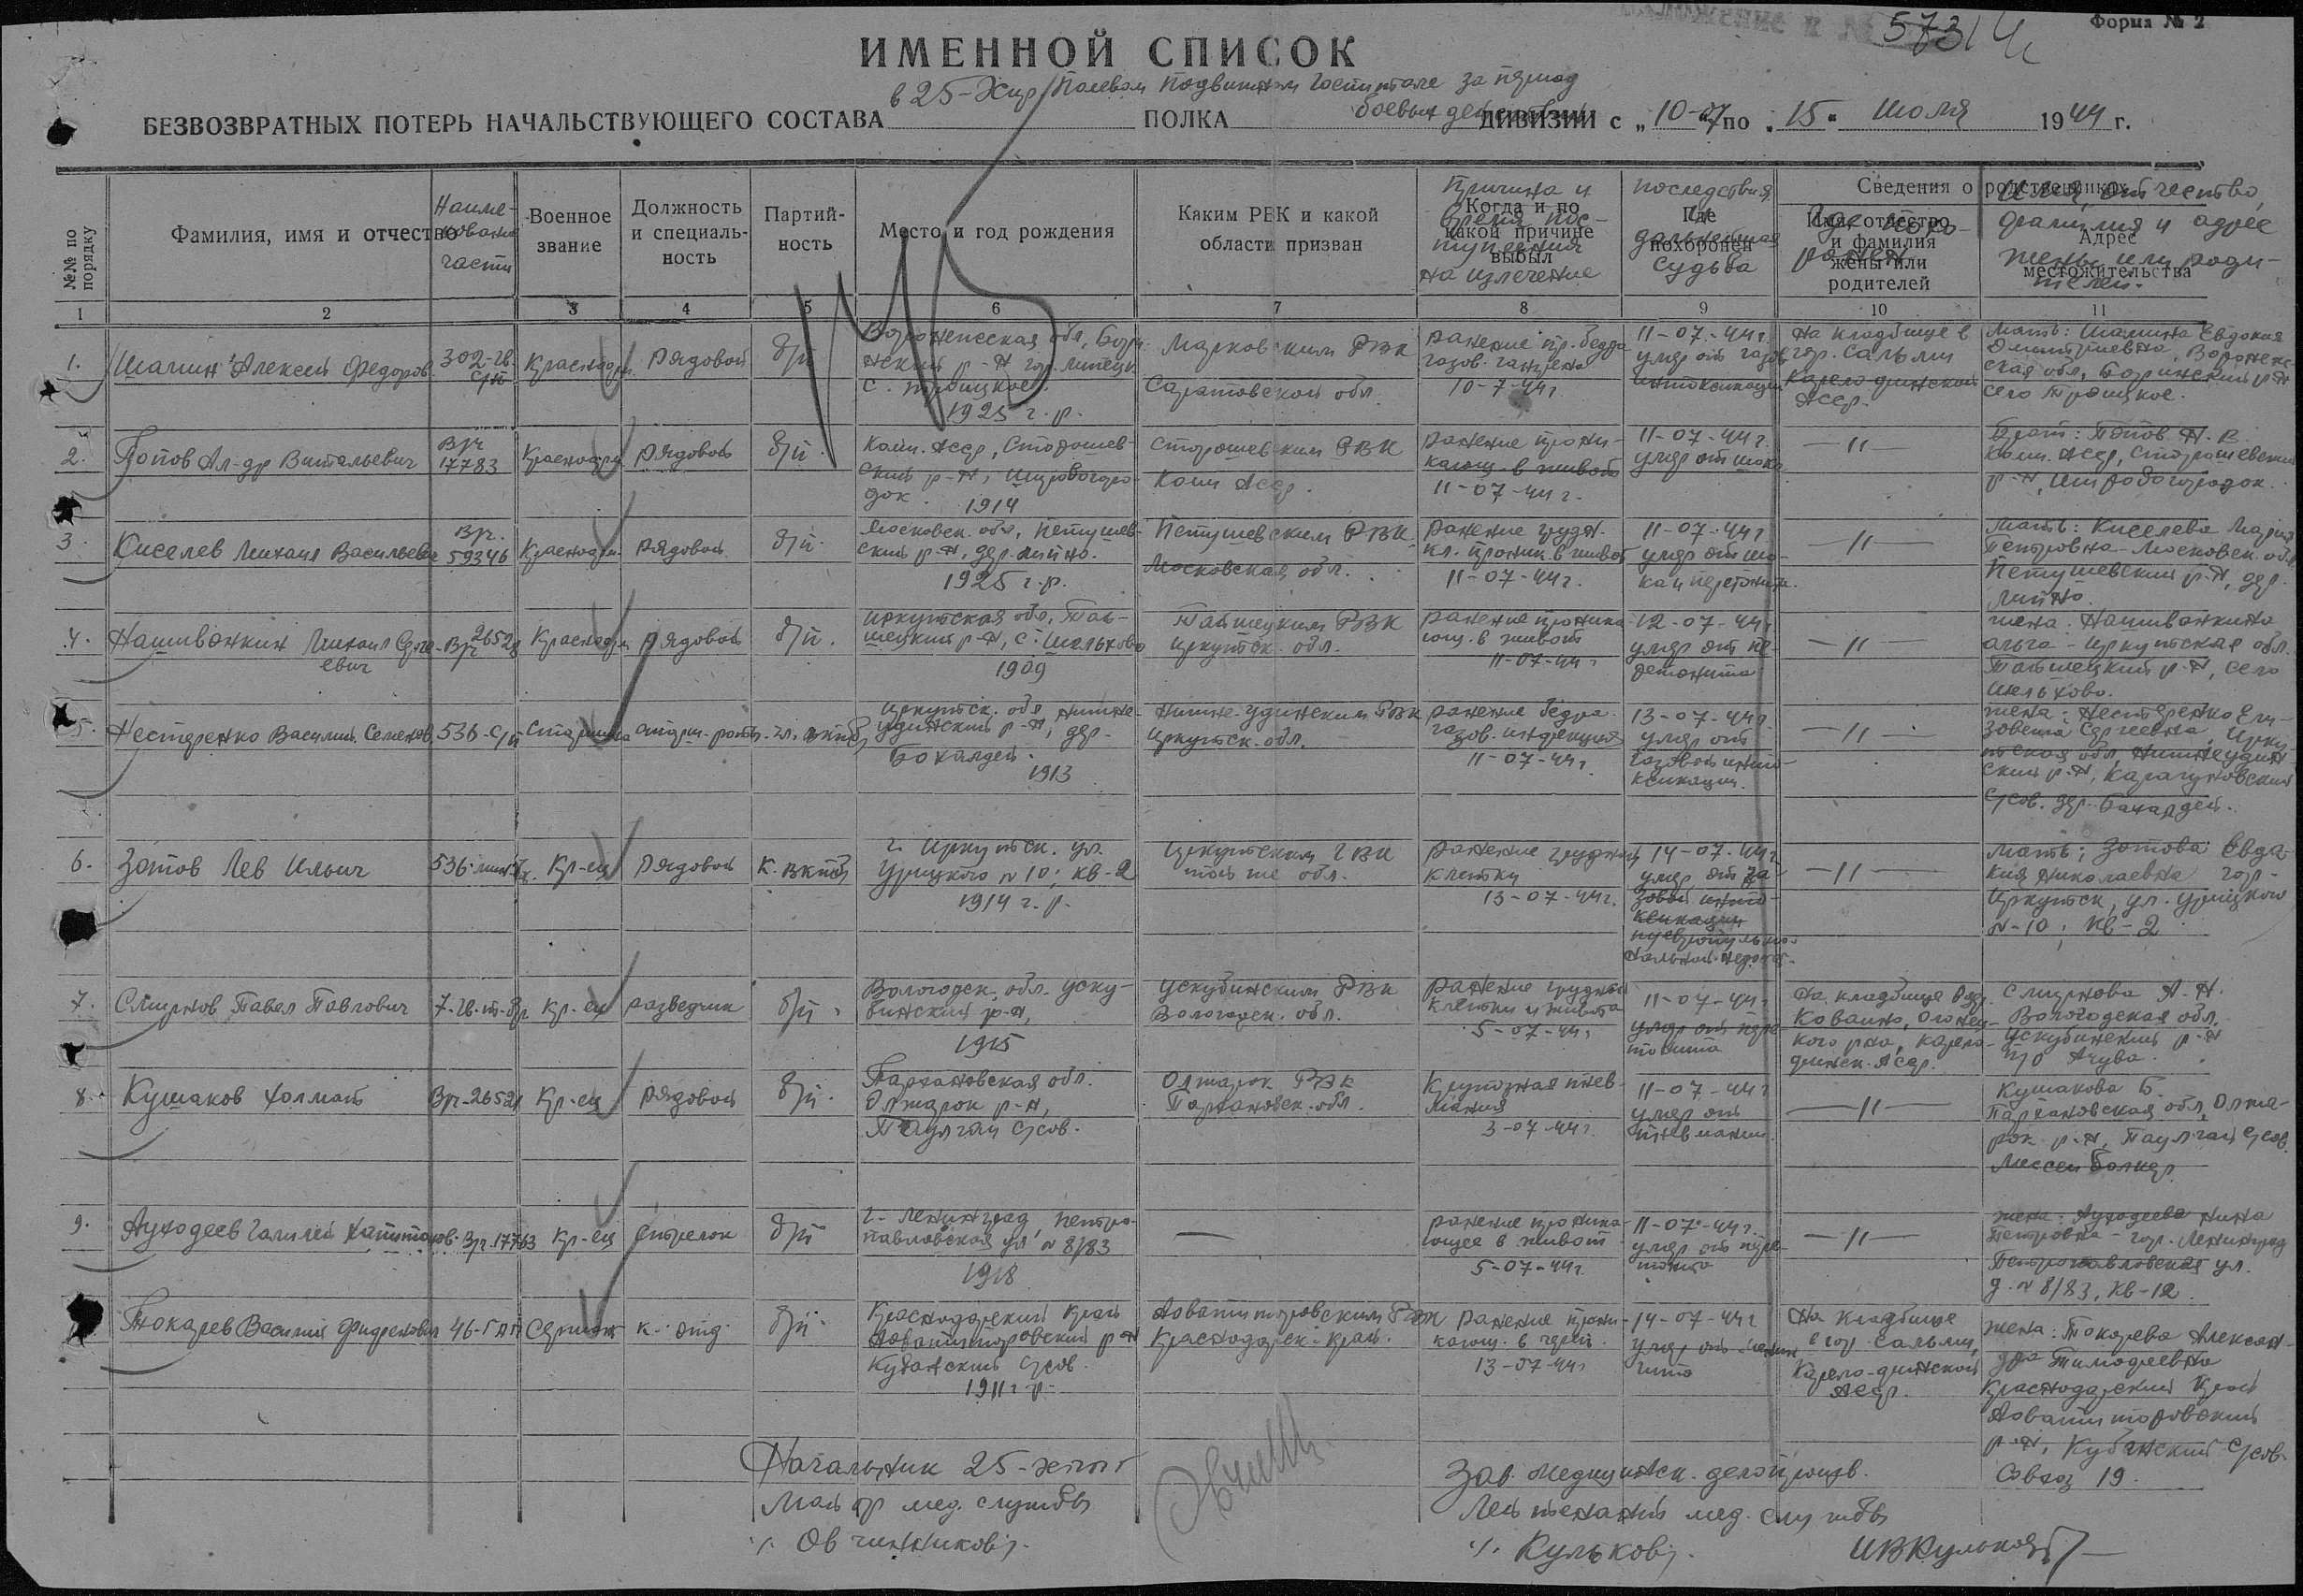 5731 Ч
Форма № 2
ИМЕННОЙ СПИСОК
в 25-Хир/Полевом Подвижном Госпитале за период
БЕЗВОЗВРАТНЫХ ПОТЕРЬ НАЧАЛЬСТВУЮЩЕГО СОСТАВА ПОЛКА боевых действий ДИВИЗИИ с „ 10-07 по „ 15 " Июля 1944 г.
№№ по порядку
Фамилия, имя и отчество
Наиме-
нование
части
Военное
звание
Должность
и специаль-
ность
Партий-
ность
Место и год рождения
Каким РВК и какой
области призван
Причина и
время пос-
тупления
на излечение
Когда и по
какой причине
выбыл
последствия
и
дальнейшая
судьба
Где
похоронен
Сведения о родственниках
Имя, отчество
и фамилия
жены или
родителей
Где похо-
ронен
Имя, отчество,
фамилия и адрес
жены или роди-
телей.
Адрес
местожительства
1 2 3 4 5 6 7 8 9 10 11
1. Шамин Алексей Федоров. 302-гв. сп Красноарм. Рядовой б/п
с. Троицкое
1925 г.р.
Марковским РВК
Саратовской обл.
ранение пр. бедра
газов. гангрена
10-7-44г
11-07-44г
умер от газов
интоксикации
На кладбище в
гор. Сальми
Карело-финской
АССР.
Мать: Шамина Евдокия
Дмитриевна, Воронежс-
кая обл, Боринский р-н
село Троицкое.
2. Попов Ал-др Витальевич Вр 17783 Красноарм рядовой б/п.
Коми АССР, Сторожев-
ский р-н,
1914
Сторожевским РВК
Коми АССР.
ранение прони-
кающ. в живот
11-07-44г.
11-07-44г.
умер от шока
—"—
Брат: Попов Н.В.
Коми АССР, Сторожевский
р-н,
3. Киселев Михаил Васильевич Вр. 59346 Красноарм. рядовой б/п.
Московск. обл, Петушев-
ский р-н, дер.
1925 г.р.
Петушевским РВК
Московская обл.
ранение грудн.
кл. проник. в живот
11-07-44г.
11-07-44г
умер от шо-
ка и перитонита.
—"—
Мать: Киселева Мария
Петровна-Московск. обл
Петушевский р-н, дер.
4. Нашивонкин Михаил Серге- Вр 26528 Красноарм рядовой б/п.
евич
Иркутская обл, Тай-
шецкий р-н, с. Шелехово
1909
Тайшецким РВК
Иркутск. обл.
ранение проника
ющ. в живот
11-07-44г
12-07-44г
умер от пе-
ретонита
—"—
жена: Нашивонкина
Ольга - Иркутская обл.
Тайшецкий р-н, село
5. Нестеренко Василий Семенов. 536-сп Старшина старш-роты чл. ВКП(б)
Иркутск. обл Нижне-
удинский р-н, дер.
Бохалдей.
1913
Нижне-Удинским РВК
Иркутск. обл.
ранение бедра
газов. инфекция
11-07-44г.
13-07-44г
умер от
газовой инто-
ксикации.
—"—
жена: Нестеренко Ели-
зовета Сергеевна, Ирку-
тская обл, Нижнеудин
ский р-н,
с/сов. дер. Бахалдей.
6. Зотов Лев Ильич 536-мин. Кр-ец Рядовой К. ВКП(б)
г. Иркутск. ул.
Урицкого № 10; кв-2
1914 г.р.
Иркутским ГВК
той же обл.
ранение грудной
клетки
13-07-44г.
14-07-44г
умер от га-
зовой инто-
ксикации
—"—
Мать: Зотова Евдо-
кия Николаевна гор-
Иркутск, ул. Урицкого
№-10; кв-2
7. Смирнов Павел Павлович 7-гв.т-бр кр-ец разведчик б/п.
Вологодск. обл. Уску-
бинский р-н,
1915
Ускубинским РВК
Вологодск. обл.
Ранение грудной
клетки и живота
5-07-44г
11-07-44г
умер от пери-
тонита
На кладбище в дер.
Смирнова А.Н.
Вологодская обл.
Ускубинский р-н
8. Кушаков Холмат Вр-26521 Кр-ец рядовой б/п.
р-н,
с/сов.
РВК
Крупозная пнев-
мония
3-07-44г.
11-07-44г
умер от
пневмонии.
—"—
Кушакова Б.
р-н, с/сов
9. Вр. 17763 кр-ец стрелок б/п
г. Ленинград, Петро-
павловская ул № 8/83
1918
—
ранение проника-
ющее в живот
5-07-44г.
11-07-44г.
умер от пери-
тонита
—"—
Петровна - гор. Ленинград
Петропавловская ул.
д. № 8/83, кв-12.
Токарев Василий 46-ГАП Сержант к-отд. б/п
Краснодарский край
р-н
Кубанский с/сов.
1911 г.р.
РВК
Краснодарск-край.
Ранение прони-
кающ. в череп
13-07-44г
14-07-44г
умер от менин
гита
На кладбище
в гор Сальми,
Карело-финской
АССР.
жена: Токарева Алексан-
дра Тимофеевна
Краснодарский край
р-н, Кубанский с/сов.
Совхоз 19.
Начальник 25-хппг
Майор мед. службы
/ Овчинников/.
Зав. медицинск. делопроизв.
Лейтенант мед. службы
/. Кульков/.
ИВКульков